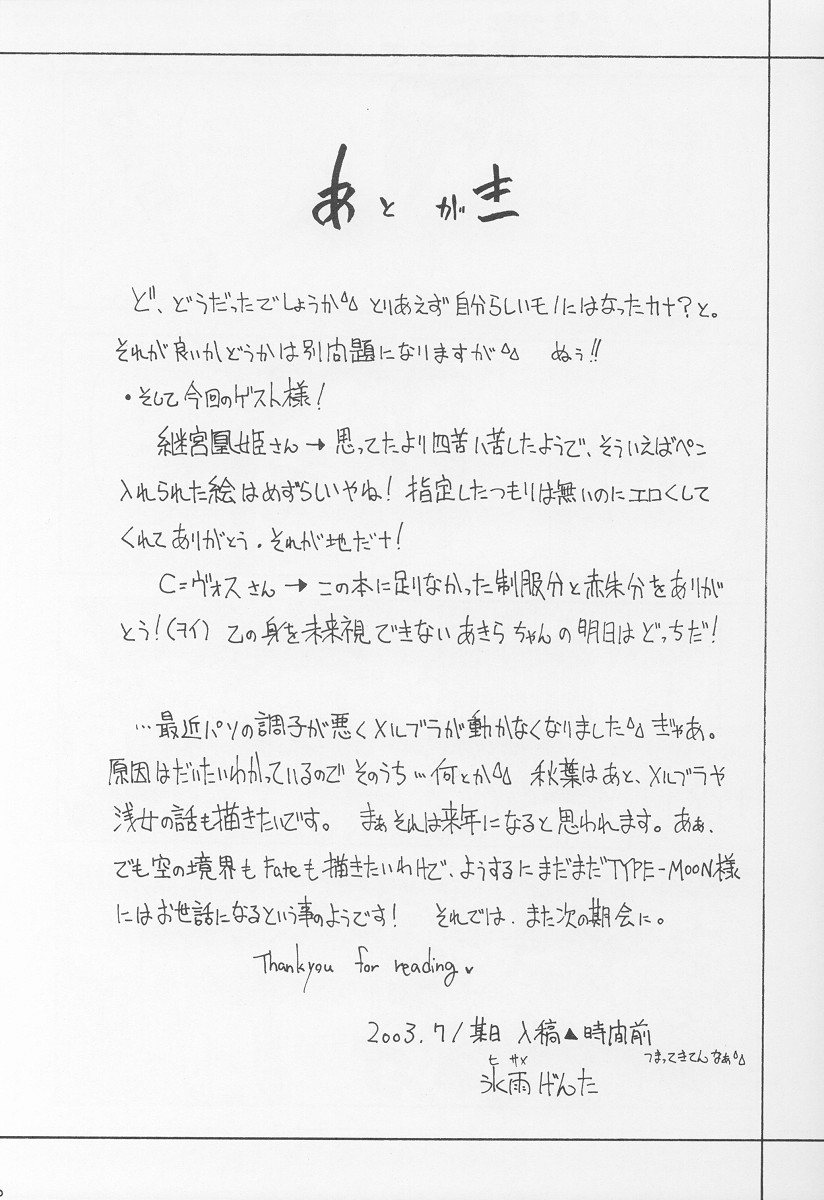 あとがき
ど、どうだったでしょうか^^ とりあえず自分らしいモノにはなったカナ?と。
それが良いかどうかは別問題になりますが^^ ぬぅ!!
・そして今回のゲスト様!
継宮凰姫さん→思ってたより四苦八苦したようで、そういえばペン
入れられた絵はめずらしいやね!指定したつもりは無いのにエロくして
くれてありがとう.それが地だナ!
C=ヴォスさん→この本に足りなかった制服分と赤朱分をありが
とう!(ヲイ) 乙の身を未来視できないあきらちゃんの明日はどっちだ!
…最近パソの調子が悪くメルブラが動かなくなりました^^ ぎゃあ。
原因はだいたいわかっているのでそのうち…何とか^^ 秋葉はあと、メルブラや
浅女の話も描きたいです。 まぁそれは来年になると思われます。あぁ、
でも空の境界もFateも描きたいわけで、ようするにまだまだTYPE-MOON様
にはお世話になるという事のようです! それでは、また次の期会に。
Thankyou for reading♥
2003.7/某日 入稿▲時間前
つまってきてんなぁ^^
ヒサメ
氷雨げんた